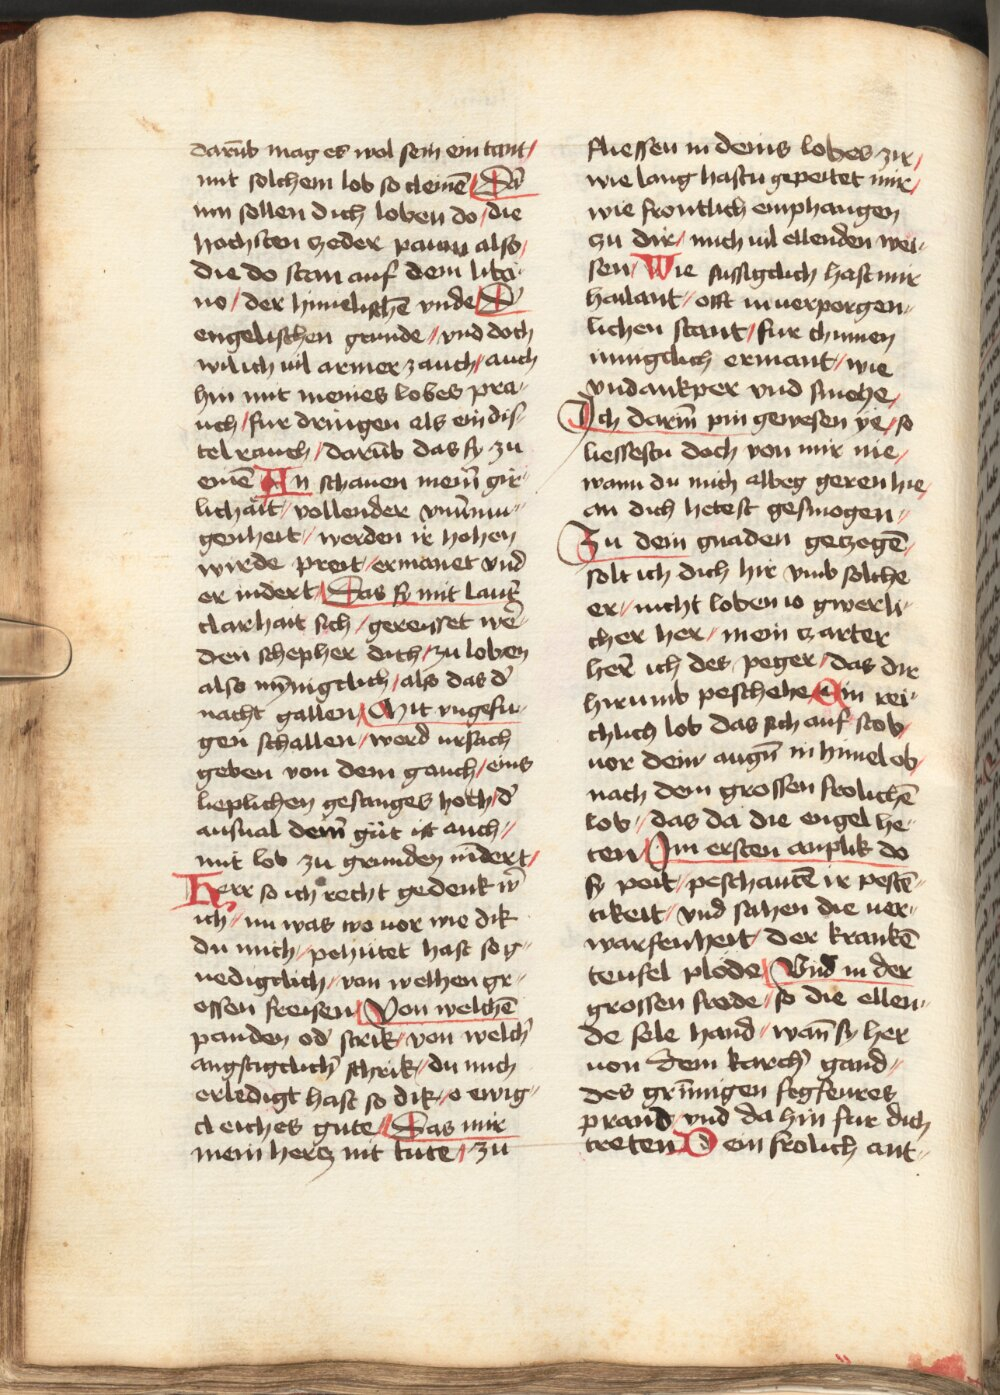 darūb mag es wol sein ein tant/
mit solchem lob so cleinē/ Dā
nn sollen dich loben do/ die
hochsten zeder paum also/
die do stan auf dem liba-
no/ der himelischē vnde/ Dˀ
engelischen grunde// vnd doch
wil ich vil armer zauch/ auch
hin mit meines lobes pra-
uch/ fur dringen als ein dis-
tel rauch/ darūb das sy zu
einē An schauen meinˀ gir-
lichait/ vollender
genheit// werden ir hohen
wirde preit/ ermanet vnd
er indert/ Das sy mit lautˀ
clarhait sich/ gereisset wer-
den schepher dich/ zu loben
also ynnigclich/ als das dˀ
nacht gallen/ Mit vngefu-
gen schallen/ werd ursach
geben von dem gauch/ eins
lieplichen gesanges hoch/ dˀ
ausual deinˀ güt ist auch//
mit lob zu grunden mīdert/
Herr so ich recht gedenk wˀ
ich// nu was wo vor wie dik
du mich/ pehütet hast so g-
nedigclich/ von welhen gr-
ossen freisen/ Von welchē
panden odˀ strik/ von welchˀ
angstigclichˀ schrik/ du mich
erledigt hast so dik/ o ewig-
cleiches gute// Das mir
mein hertz nit lute/ zu
fliessen in deins lobes zir/
wie lang hastu gepeitet mir/
wie frontlich emphangen
zu dir/ mich vil ellenden wei-
sen/ Wie sussigclich hast mir
hailant// offt in verporgen-
lichen stant/ fur chumen
innigclich ermant/ wie
vndankper vnd smehe/
Ich darin pin gewesen ye/ so
liessestu doch von mir nie/
wann du mich albeg geren hie/
an dich hetest gesmogen//
Zu dein gnaden getzogē/
solt ich dich hir vmb solche
er// nicht loben io gwerli-
cher her/ mein zarter
herˀ ich des peger/ das dir
hirumb peschehe/ Ain rei-
chlich lob das sich auf stob/
vor dein augn̄ in himel ob/
nach dem grossen frolichē
lob// das da die engel he-
ten/ Im ersten anplik do
sy peit/ peschautē ir pestē-
tikeit/ vnd sahen die ver-
warfenheit/ der krankē
teufel plode/ Vnd in der
grossen frode/ so die ellen-
de sele hand// wan̄ sy her
von dem karchˀ gand//
des grīmigen fegfeures
prand/ vnd da hin fur dich
treten/ Dein frolich ant-